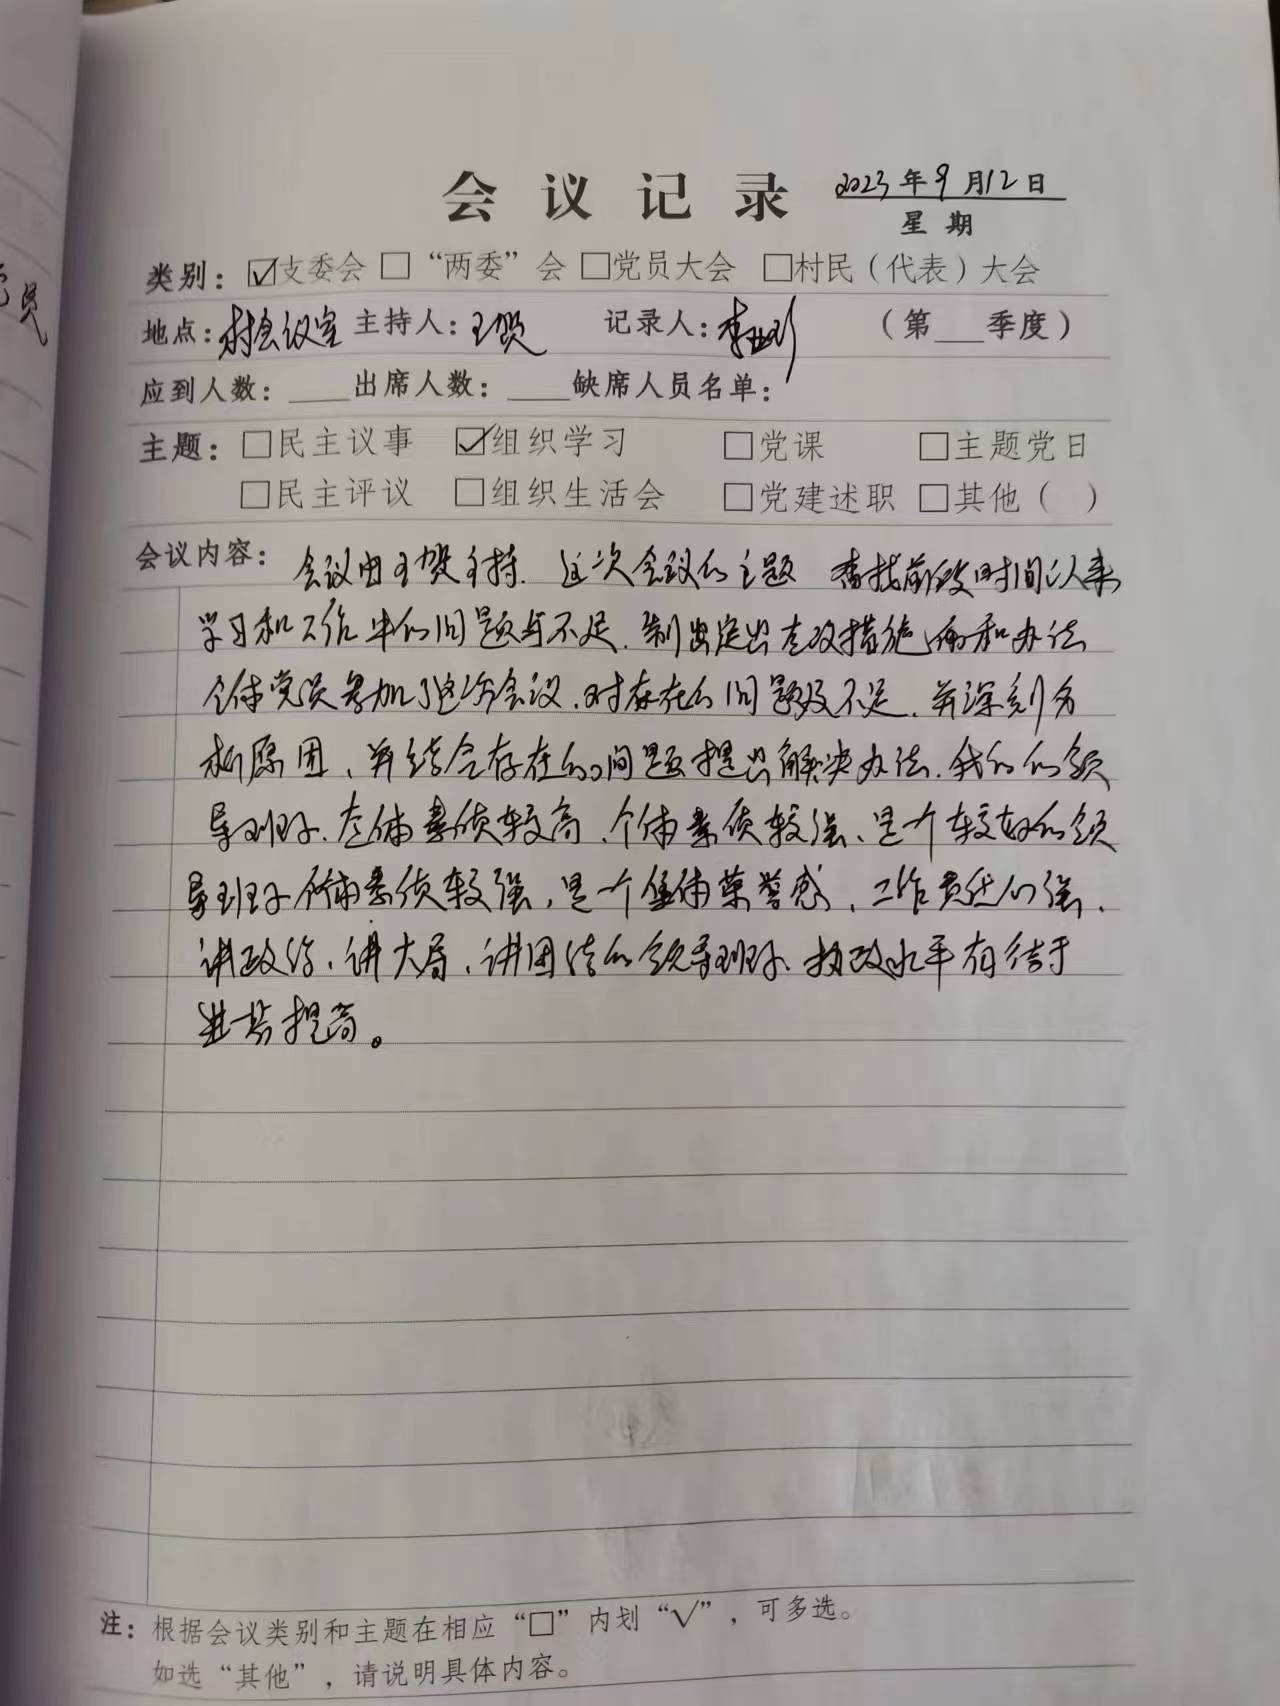 党员
会议记录 2023年9月12日
星期
类别：☑支委会 □“两委”会 □党员大会 □村民（代表）大会
地点：村会议室 主持人：王贺 记录人：李 （第___季度）
应到人数：____出席人数：____缺席人员名单：
主题：□民主议事 ☑组织学习 □党课 □主题党日
□民主评议 □组织生活会 □党建述职 □其他（ ）
会议内容： 会议由王贺主持．这次会议的主题 查找前段时间以来
学习和工作中的问题与不足．制出定出 改措施 和办法
全体党员参加了这次会议．对存在的问题及不足．并深刻分
析原因、并结合存在的问题提出解决办法．我们的领
导班子．整体素质较高、个体素质较强、是一个较好的领
导班子个体素质较强，是一个集体荣誉感、工作责任心强．
讲政治、讲大局、讲团结的领导班子、执政水平有待于
进一步提高。
注：根据会议类别和主题在相应“□”内划“√”，可多选。
如选“其他”，请说明具体内容。